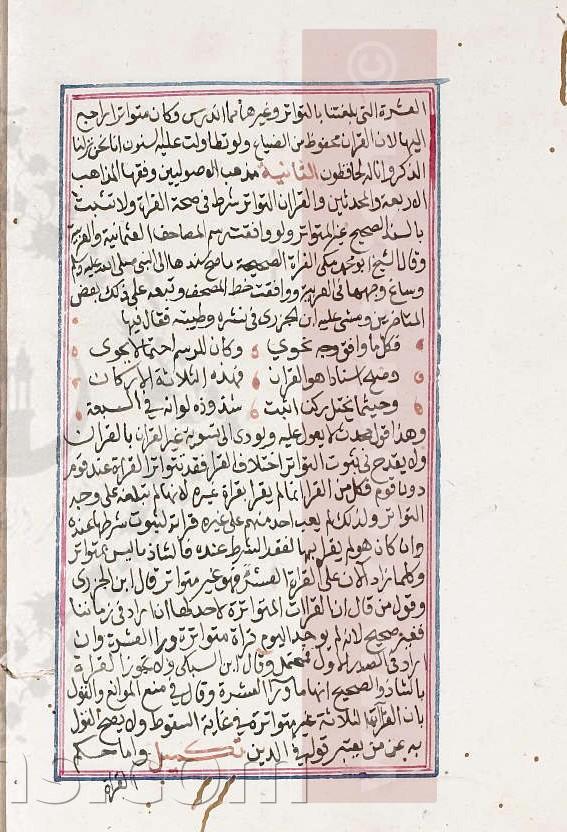 العشرة التي بلغتنا بالتواتر وغيرها مما اندرس وكان متواترا راجع
اليها لان القران محفوظ من الضياع ولو تطاولت عليه السنون انا نحن نزلنا
الذكر وانا له لحافظون الثانية مذهب الاصوليين وفقها المذاهب
الاربعة والمحدثين والقران التواتر شرط في صحة القراة ولا تثبت
بالسند الصحيح غير المتواتر ولو وافقت رسم المصاحف العثمانية والعربية
وقال الشيخ ابو محمد مكي القراة الصحيحة ما صح سندها الى النبي صلى الله عليه وسلم
وساغ وجهها في العربية ووافقت خط المصحف وتبعه على ذلك بعض
المتاخرين ومشى عليه ابن الجزري في نشره وطيبته فقال فيها
فكل ما وافق وجه نحوي وكان للرسم احتمالا يحوي
وصح اسنادا هو القران فهذه الثلاثة الاركان
وحيثما يختل ركن اثبت شذوذه لو انه في السبعة
وهذا قول محدث لا يعول عليه ويودي الى تسوية غير القران بالقران
ولا يقدح في ثبوت التواتر اختلاف القرا فقد تتواتر القراة عند قوم
دون قوم فكل من القرا انما لم يقرا بقراة غيره لانها لم تبلغه على وجه
التواتر ولذلك لم يعب احد منهم على غيره قراته لثبوت شرطها عنده
وان كان هو لم يقرا بها لفقد الشرط عنده فالشاذ ما ليس بمتواتر
وكلما زاد الان على القراة العشر فهو غير متواتر قال ابن الجزري
وقول من قال ان القراات المتواترة لا حد لها ان اراد في زماننا
فغير صحيح لانه لم يوجد اليوم قراة متواترة ورا العشرة وان
اراد في الصدر الاول فمحتمل وقال ابن السبكي ولا تجوز القراة
بالشاذ والصحيح انه ما ورا العشرة وقال في منع الموانع والقول
بان القراات الثلاثة غير متواترة في غاية السقوط ولا يصح القول
به عمن يعتبر قوله في الدين تكميل واما حكم
القراة